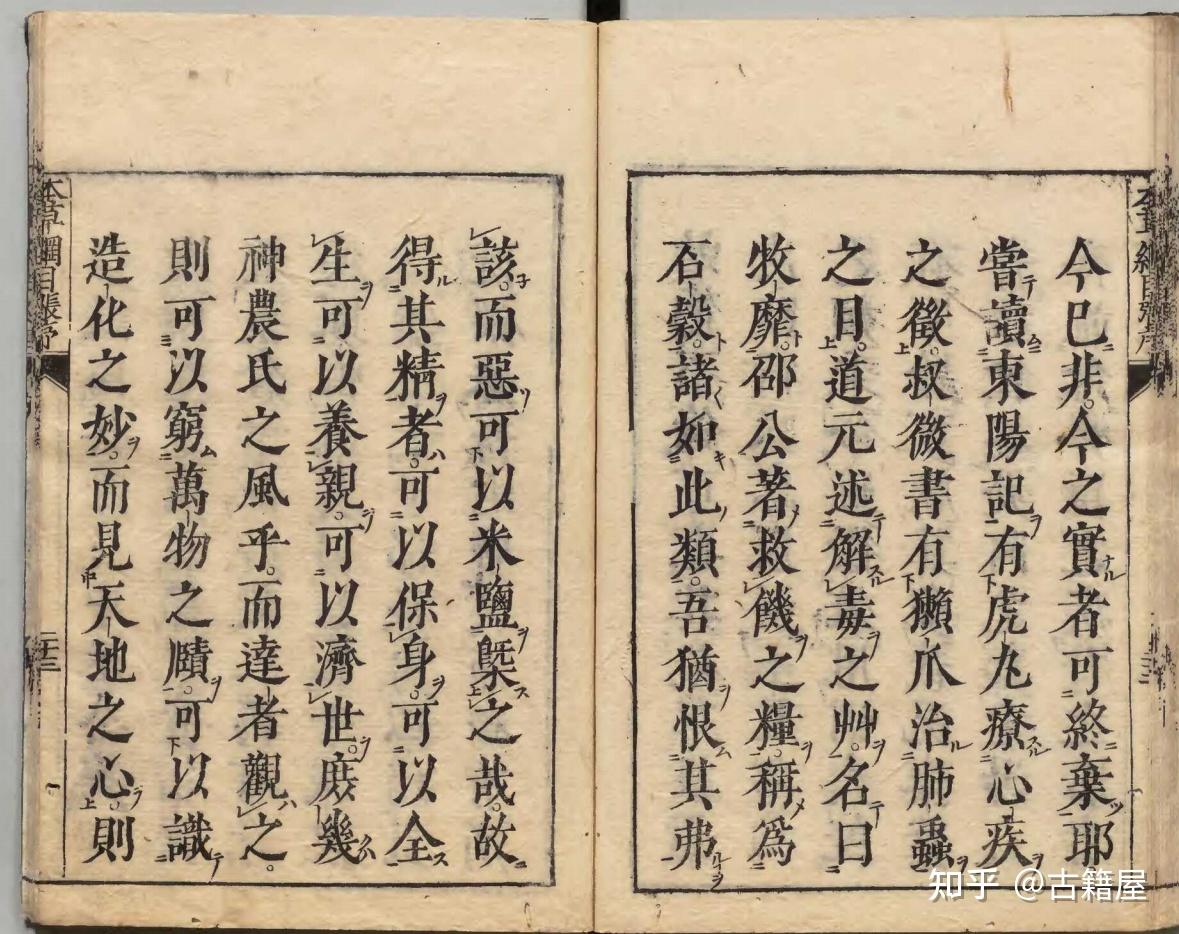 今已非今之實者可終棄耶
嘗讀東陽記有虎丸療心疾
之徵叔微書有獺爪治肺蟲
之目道元述解毒之艸名曰
牧靡邵公著救饑之糧稱爲
石穀諸如此類吾猶恨其弗
該而惡可以米鹽槩之哉故
得其精者可以保身可以全
生可以養親可以濟世庶幾
神農氏之風乎而達者觀之
則可以窮萬物之賾可以識
造化之妙而見天地之心則
本草綱目張序
知乎 @古籍屋